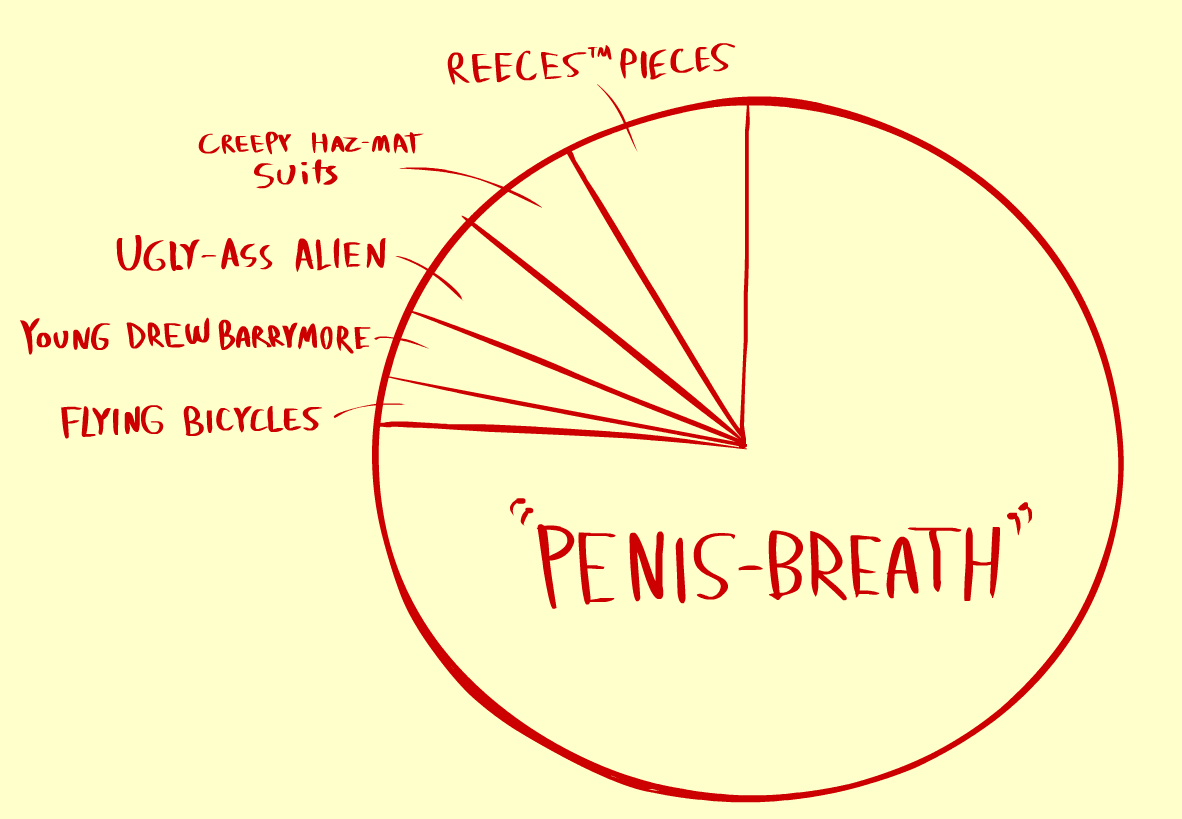 REECES™ PIECES
CREEPY HAZ-MAT
SUitS
UGLY-ASS ALIEN
YOUNG DREW BARRYMORE
FLYING BICYCLES
“PENIS-BREATH”